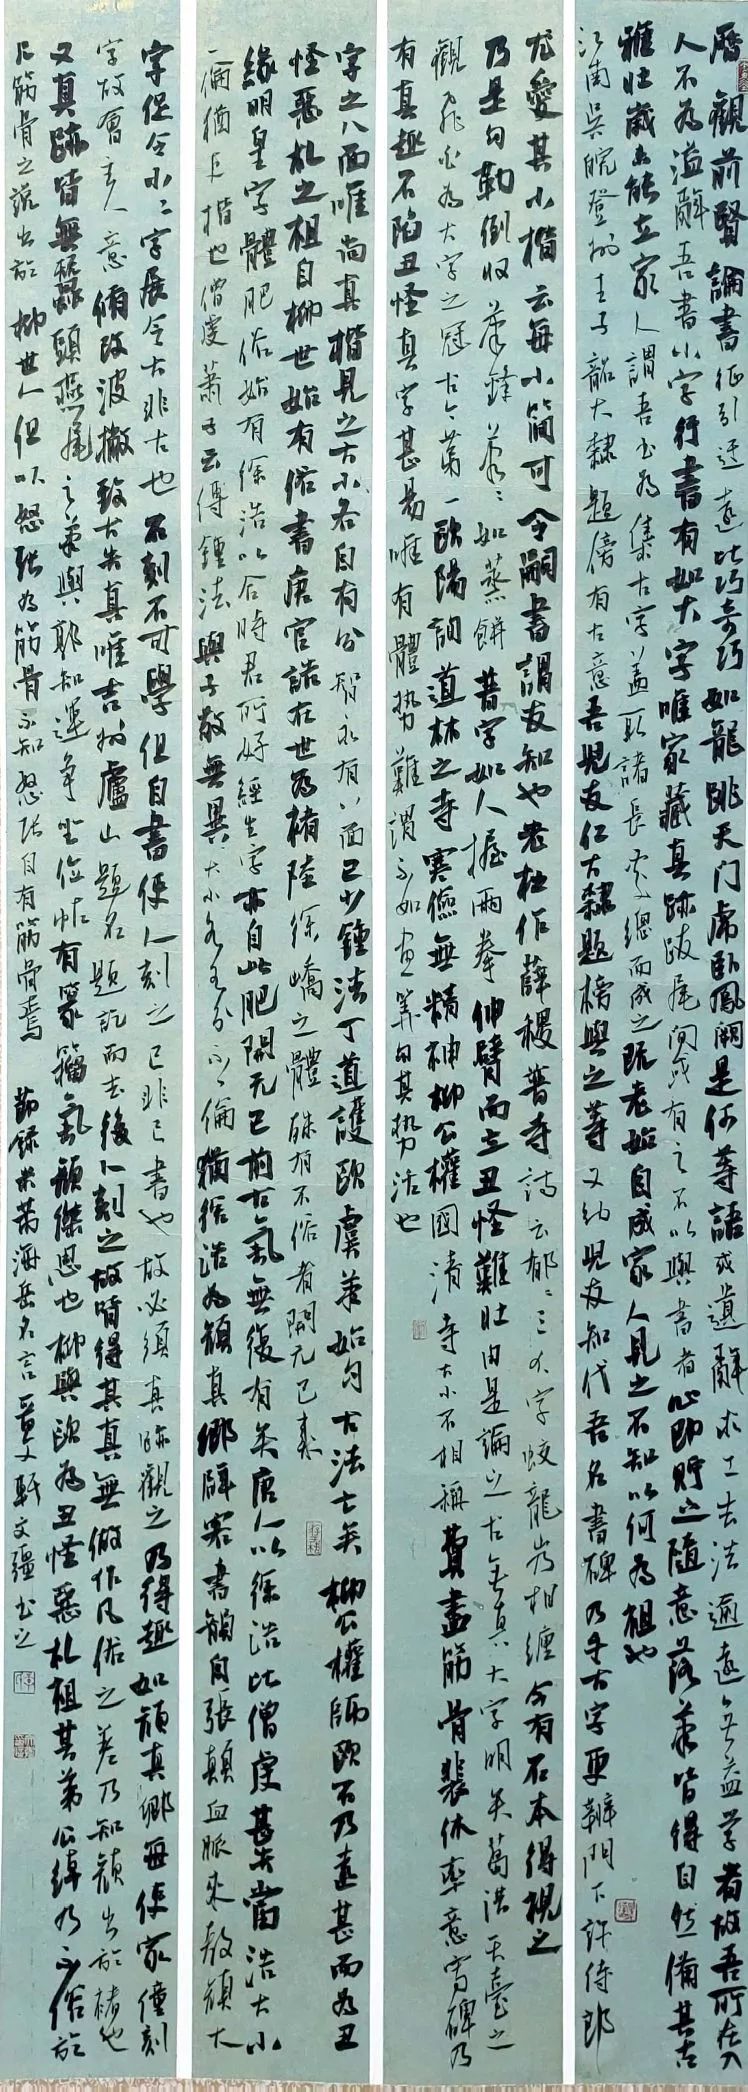 歷觀前賢論書征引迂遠比巧奇巧如龍跳天门虎卧鳳闕是何等語或遣辭求工去法逾遠無益學者故吾所在入
人不為溢辭吾書小字行書有如大字唯家藏真跡跋尾间或有之不以與書者心即貯之隨意落筆皆得自然備其古
雅壮歲未能立家人謂吾书為集古字盖取諸長處總而成之既老始自成家人見之不知以何為祖也
江南吳皖登州王子韶大隸題傍有古意吾兒友仁大隸題榜與之等又幼兒友知代吾名書碑乃手大字更辨門下許侍郎
尤愛其小楷云每小簡可令嗣書謂友知也老杜作薛稷普寺詩云郁〻三大字蛟龍岌相纏今有石本得視之
乃是勾勒倒收筆鋒筆〻如蒸餅普字如人握兩拳伸臂而立丑怪難壮由是論之古無真大字明矣葛洪天臺之
觀飛白為大字之冠古今第一歐陽詢道林之寺寒儉無精神柳公權國清寺大小不相稱費盡筋骨裴休率意寫碑乃
有真趣不陷丑怪真字甚易唯有體勢難謂不如畫算勻其勢活也
字之八面唯尚真楷見之大小各自有分智永有八面已少鍾法丁道護歐虞筆始勻古法亡矣柳公權師歐不及遠甚而為丑
怪惡札之祖自柳世始有俗書唐官誥在世為褚陸徐嶠之體殊有不俗者開元已来
緣明皇字體肥俗始有徐浩以合時君所好經生字亦自此肥開元已前古氣無復有矣唐人以徐浩比僧虔甚失當浩大小
一倫猶吏楷也僧虔蕭子云傳鍾法與子敬無異大小各有分不一倫猶徐浩為顏真卿辟客書韻自張顛血脈来教顏大
字促令小〻字展令大非古也石刻不可學但自書使人刻之已非己書也故必須真跡觀之乃得趣如顏真卿每使家僮刻
字故會主人意脩改波撇致大失真唯吉州廬山題名題訖而去後人刻之故皆得其真無做作凡俗之差乃知顏出於褚也
又真跡皆無蠶頭燕尾之筆與郭知運爭坐位帖有篆籀氣顏傑思也柳與歐為丑怪惡札祖其弟公綽乃不俗於
兄筋骨之說出於柳世人但以怒張為筋骨不知怒張自有筋骨焉 節錄米芾海岳名言 軒文疆书之